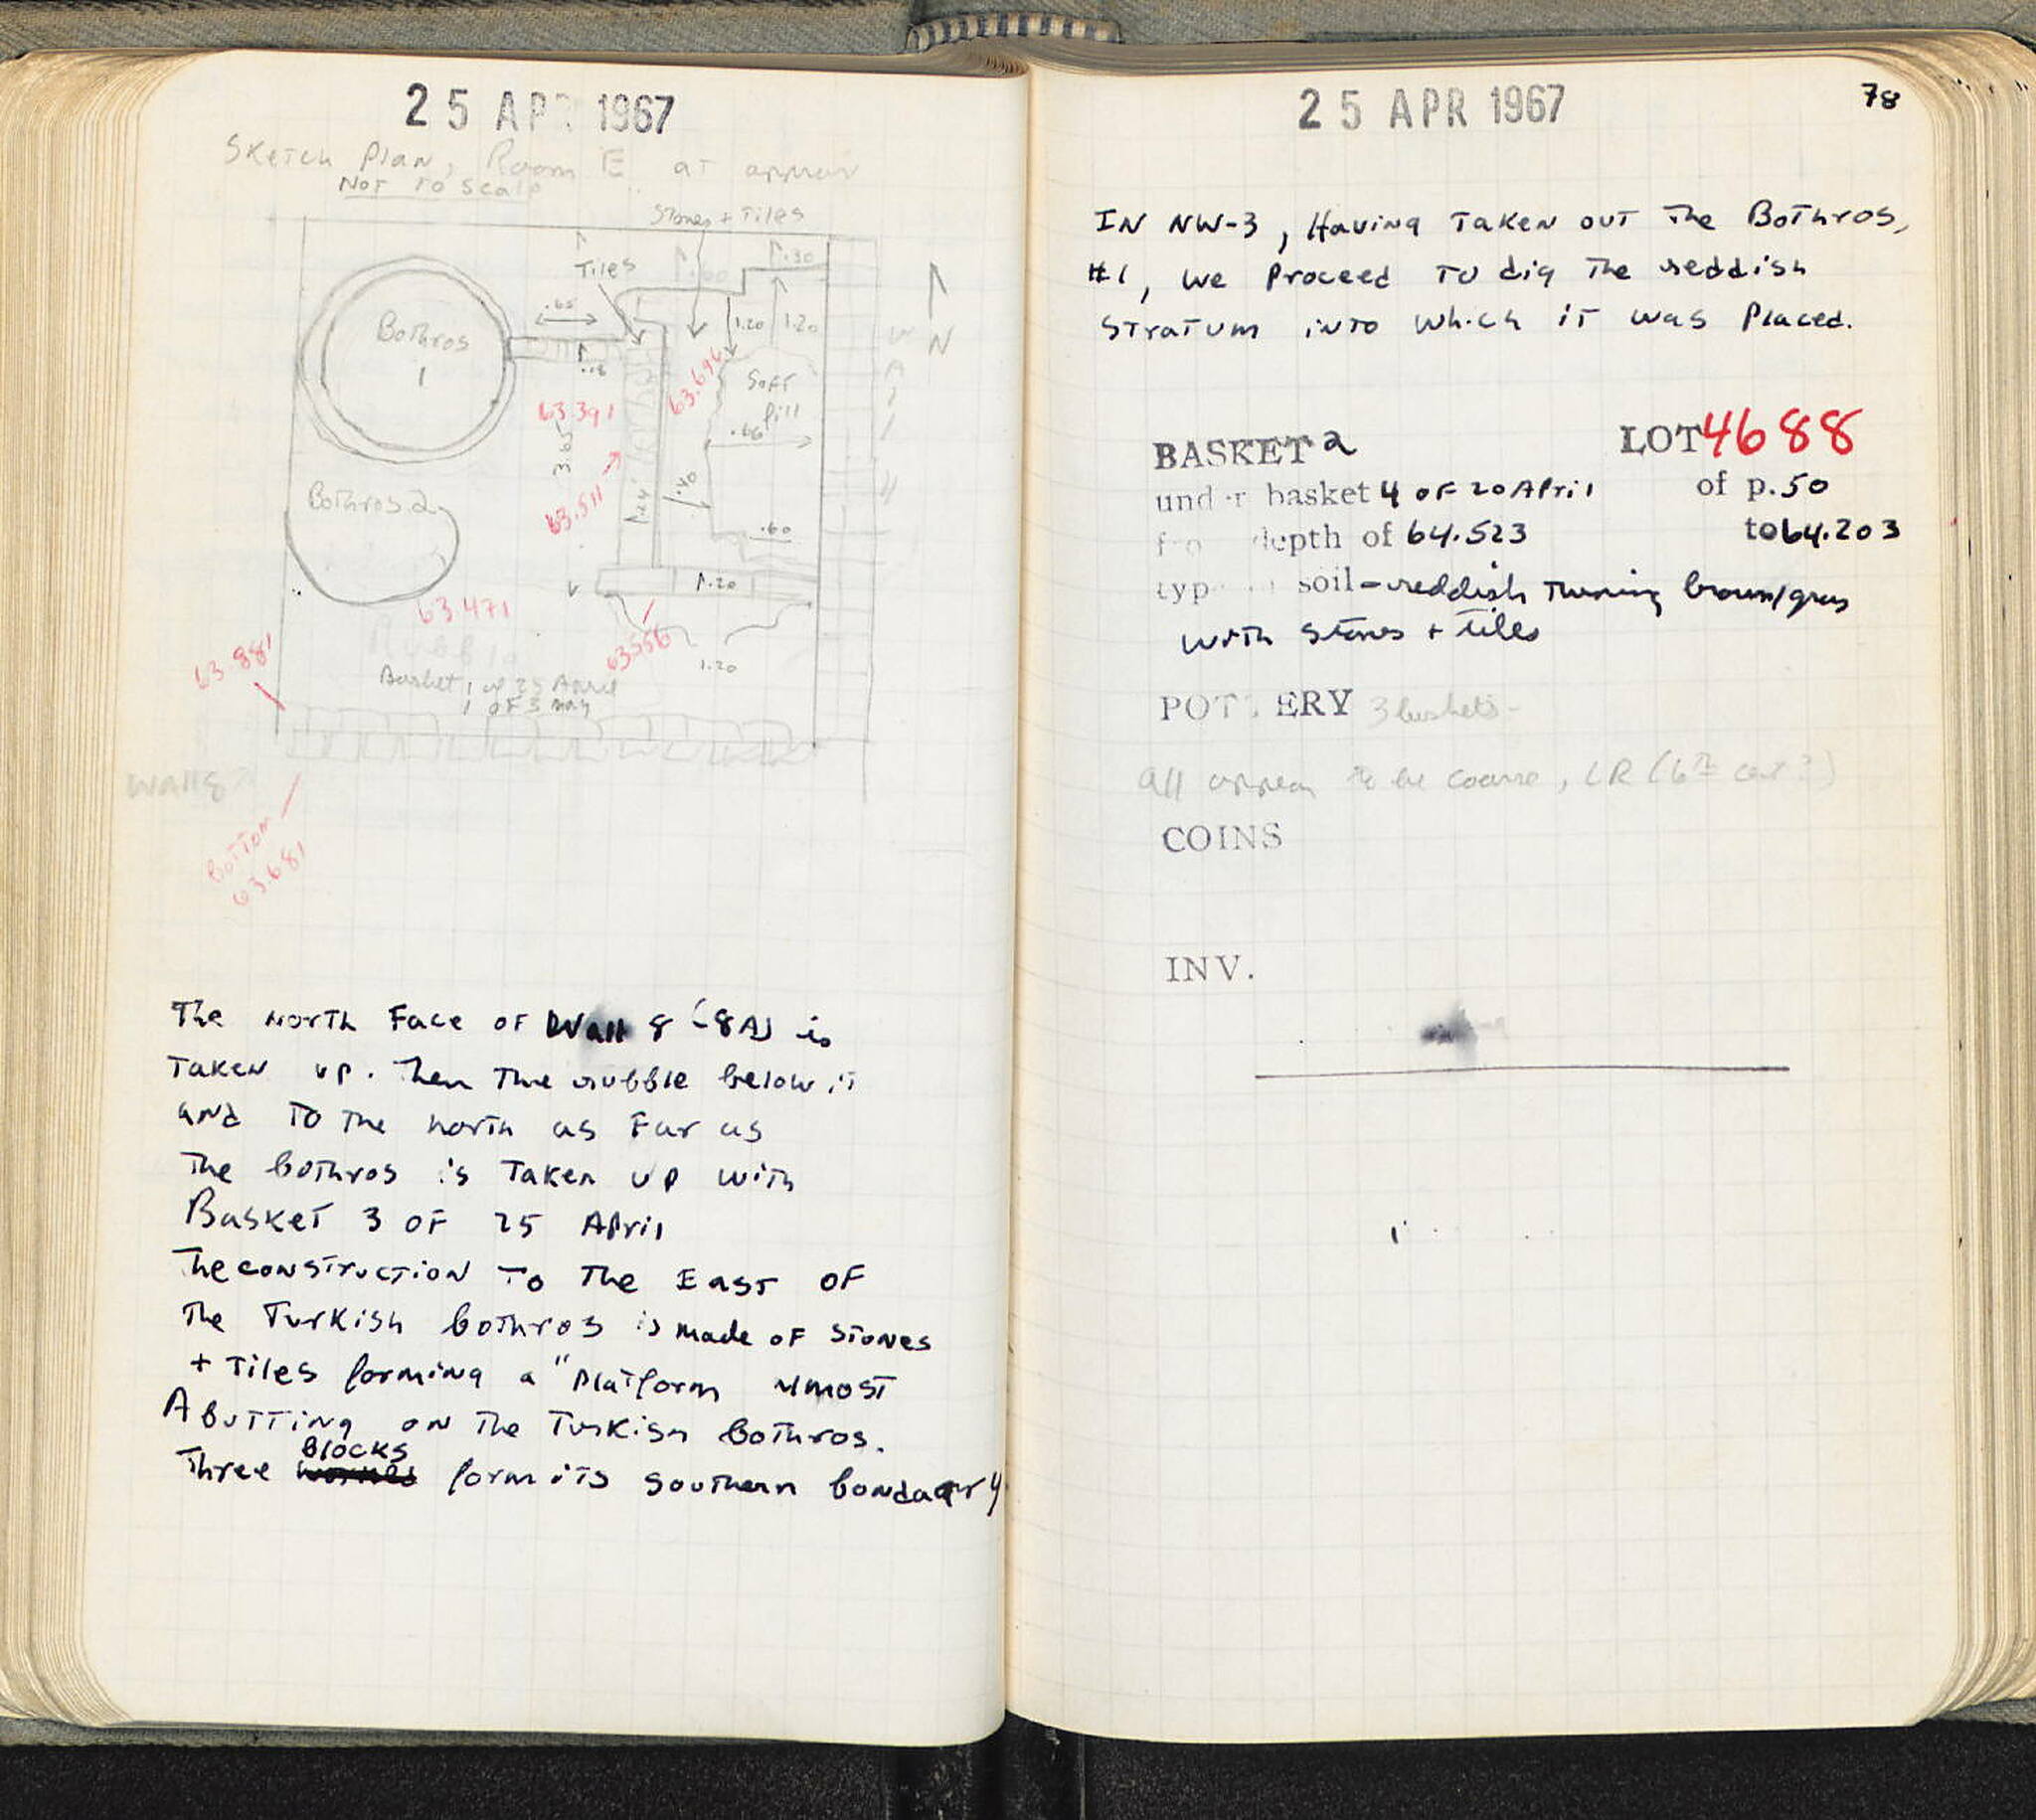 25 APR 1967
Sketch Plan, Room E at appear
NOT TO SCALE
Stones + Tiles
Tiles
.30
.65
1.20
1.20
Bothros
1
N
.18
63.391
63.696
Soft
fill
.66
3.65
63.511
.40
Bothros 2
.60
1.20
63.471
63.556
63.881
Rubble
1.20
Basket 1 of 25 April
1 OF 3 May
WALL 8
WALL
Bottom
63.681
The North Face of Wall 8 (-8A) is
Taken up. Then The rubble below it
and To The north as Far as
The bothros is Taken up with
Basket 3 OF 25 April
The construction To The East OF
The Turkish bothros is made OF Stones
+ Tiles forming a "Platform almost
Abutting on The Turkish Bothros.
Three blocks form its Southern bondaary
25 APR 1967
78
IN NW-3, Having Taken out The Bothros,
#1, we Proceed To dig The reddish
Stratum into which it was Placed.
BASKET 2 LOT 4688
under basket 4 OF 20 April of p. 50
from depth of 64.523 to 64.203
type of soil - reddish Turning brown/grey
with Stones + tiles
POTTERY 3 baskets -
All appear to be coarse, LR (6th cent?)
COINS
INV.